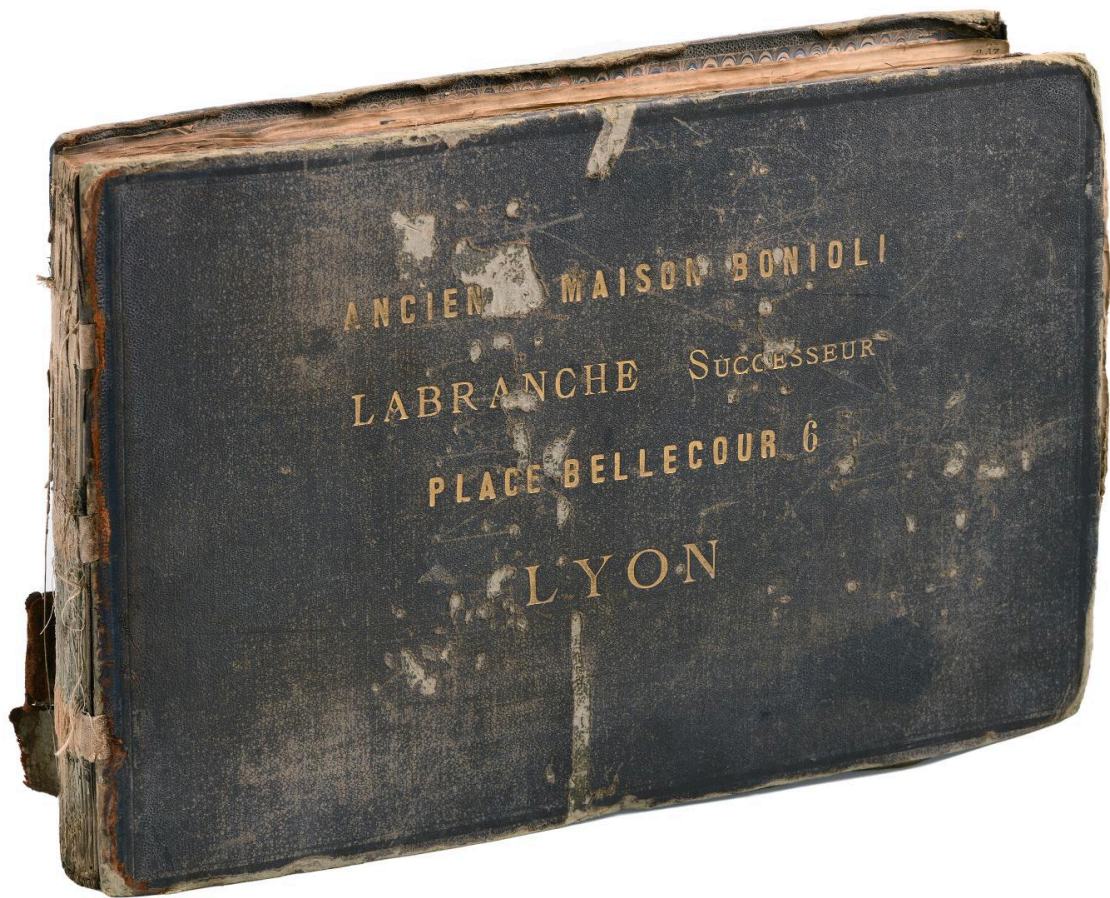 ANCIEN MAISON BONIOLI
LABRANCHE SUCCESSEUR
PLACE BELLECOUR 6
LYON